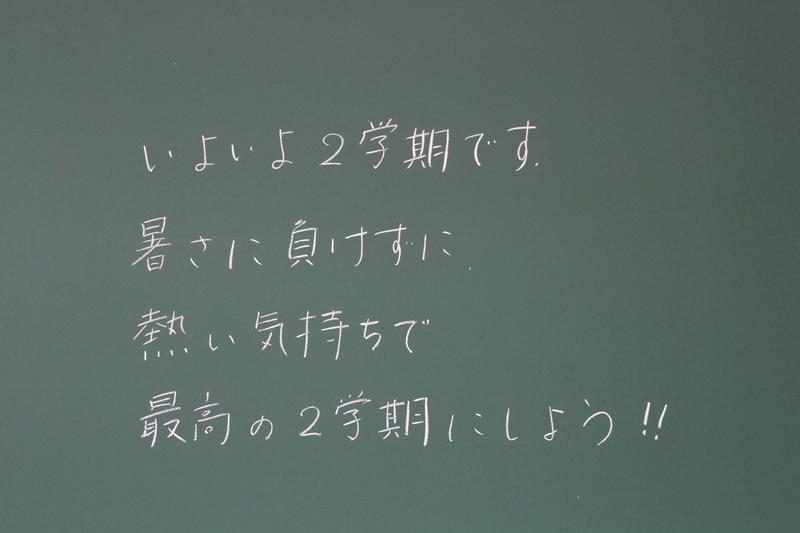 いよいよ2学期です.
暑さに負けずに.
熱い気持ちで
最高の2学期にしよう!!